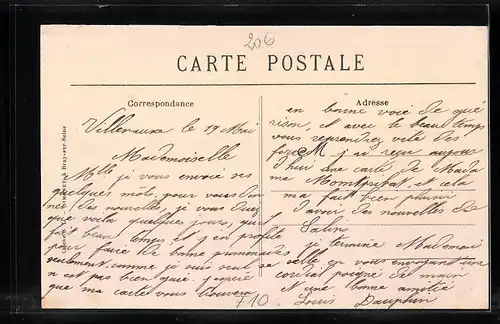 206
CARTE POSTALE
Correspondance
Adresse
Villenauxe le 19 Mai
Mademoiselle
Mlle je vous envoie ces
quelques mots pour vous don
nes des nouvelles je vous direz
que voila quelques jours, qui
fait beau temps et j'en profite
pour faire de bonne promenades
seulement, comme je suis seul se
n est pas bien gaie. J'espère
que ma carte vous trouvera
en bonne voie de gué
rison, et avec le beau temps
vous reprendrez vite des
forces M j ai reçu aujour
d'hui une carte de Mada
me et cela
ma fait bien plaisir
d'avoir des nouvelles de
Salins
je termine Mademoi
selle en vous envoyant une
cordial poigné de main
et une bonne amitié
Louis Dauphin
F10
Bray-sur-Seine